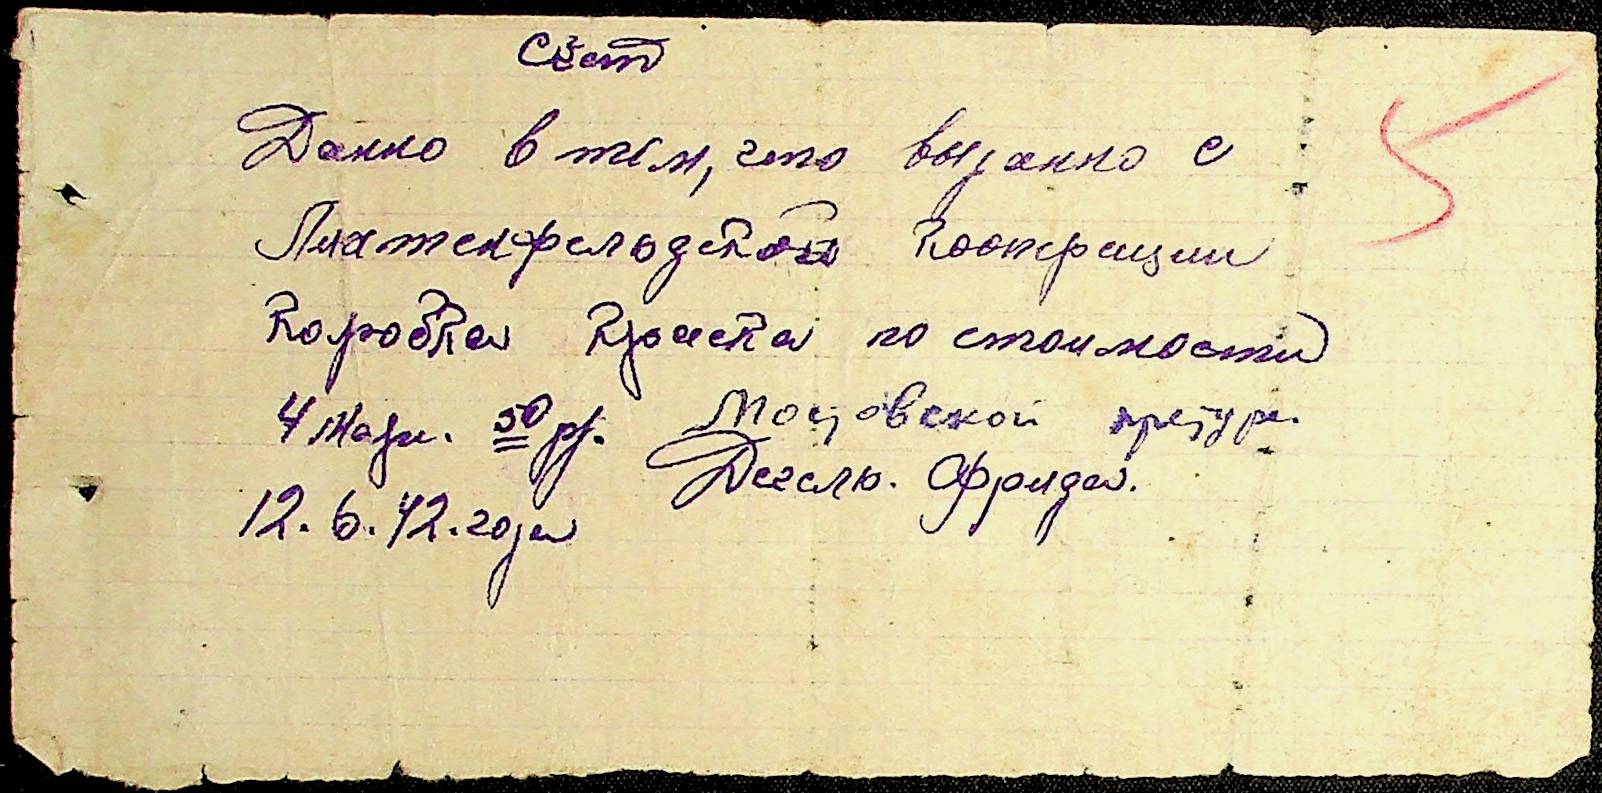 Счет
5
Данно в том, что выданно с
Лихтенфельдской Кооперации
Коробка Крыска по стоимости
4 Марк. 50 pf. Мостовской претури.
12.6.42. года Дегелю. Фрида.